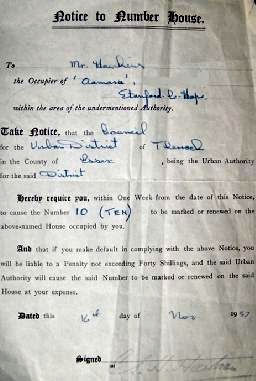 Notice to Number House.
To Mr. Hawkins
the Occupier of 'Asmara',
Stanford-le-Hope
within the area of the undermentioned Authority.
Take Notice, that the Council
for the Urban District of Thurrock
in the County of Essex, being the Urban Authority
for the said District
Hereby require you, within One Week from the date of this Notice,
to cause the Number 10 (TEN) to be marked or renewed on the
above-named House occupied by you.
And that if you make default in complying with the above Notice, you
will be liable to a Penalty not exceeding Forty Shillings, and the said Urban
Authority will cause the said Number to be marked or renewed on the said
House at your expense.
Dated this 16th day of Nov 1937
Signed